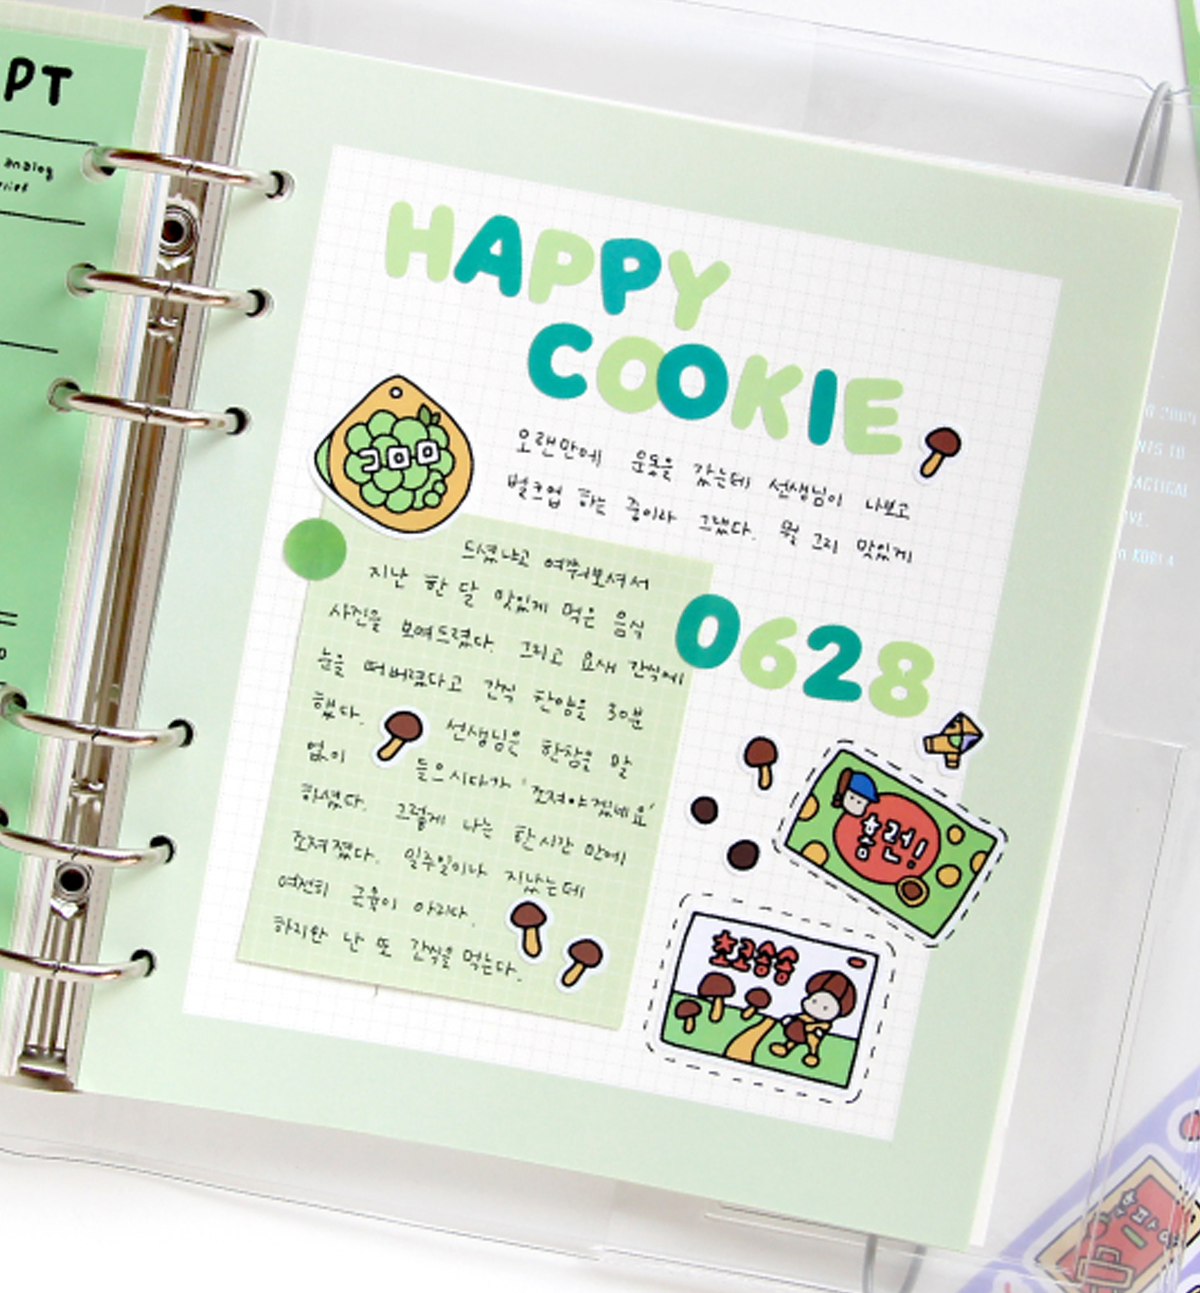 PT
analog
HAPPY
COOKIE
오랜만에 운동을 갔는데 선생님이 나보고
벌크업 하는 중이라 그랬다. 뭘 그리 맛있게
드셨냐고 여쭤보셔서
지난 한 달 맛있게 먹은 음식
사진을 보여드렸다. 그리고 요새 간식에
눈을 떠버렸다고 간식 찬양을 30분
했다. 선생님은 한참을 말
없이 들으시다가 '조져야겠네요'
하셨다. 그렇게 나는 한시간 만에
조져졌다. 일주일이나 지났는데
여전히 근육이 아리다.
하지만 난 또 간식을 먹는다.
0628
고미
홈런!
초코송송